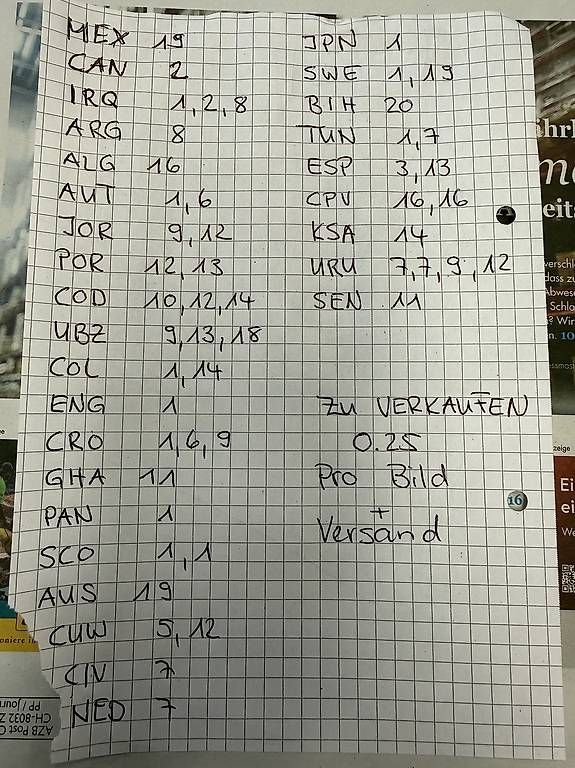 MEX 19
CAN 2
IRQ 1, 2, 8
ARG 8
ALG 16
AUT 1, 6
JOR 9, 12
POR 12, 13
COD 10, 12, 14
UBZ 9, 13, 18
COL 1, 14
ENG 1
CRO 1, 6, 9
GHA 11
PAN 1
SCO 1, 1
AUS 19
CUW 5, 12
CIV 7
NED 7
JPN 1
SWE 1, 19
BIH 20
TUN 1, 7
ESP 3, 13
CPV 16, 16
KSA 14
URU 7, 7, 9, 12
SEN 11
ZU VERKAUFEN
0.25
Pro Bild
+
Versand
eits
verschl
dass zu
Abwese
Schla
? Wir
n. 10
zeige
16
Ei
ei
We
oniere
AZB Post C
CH-8032 Z
PP / Journ